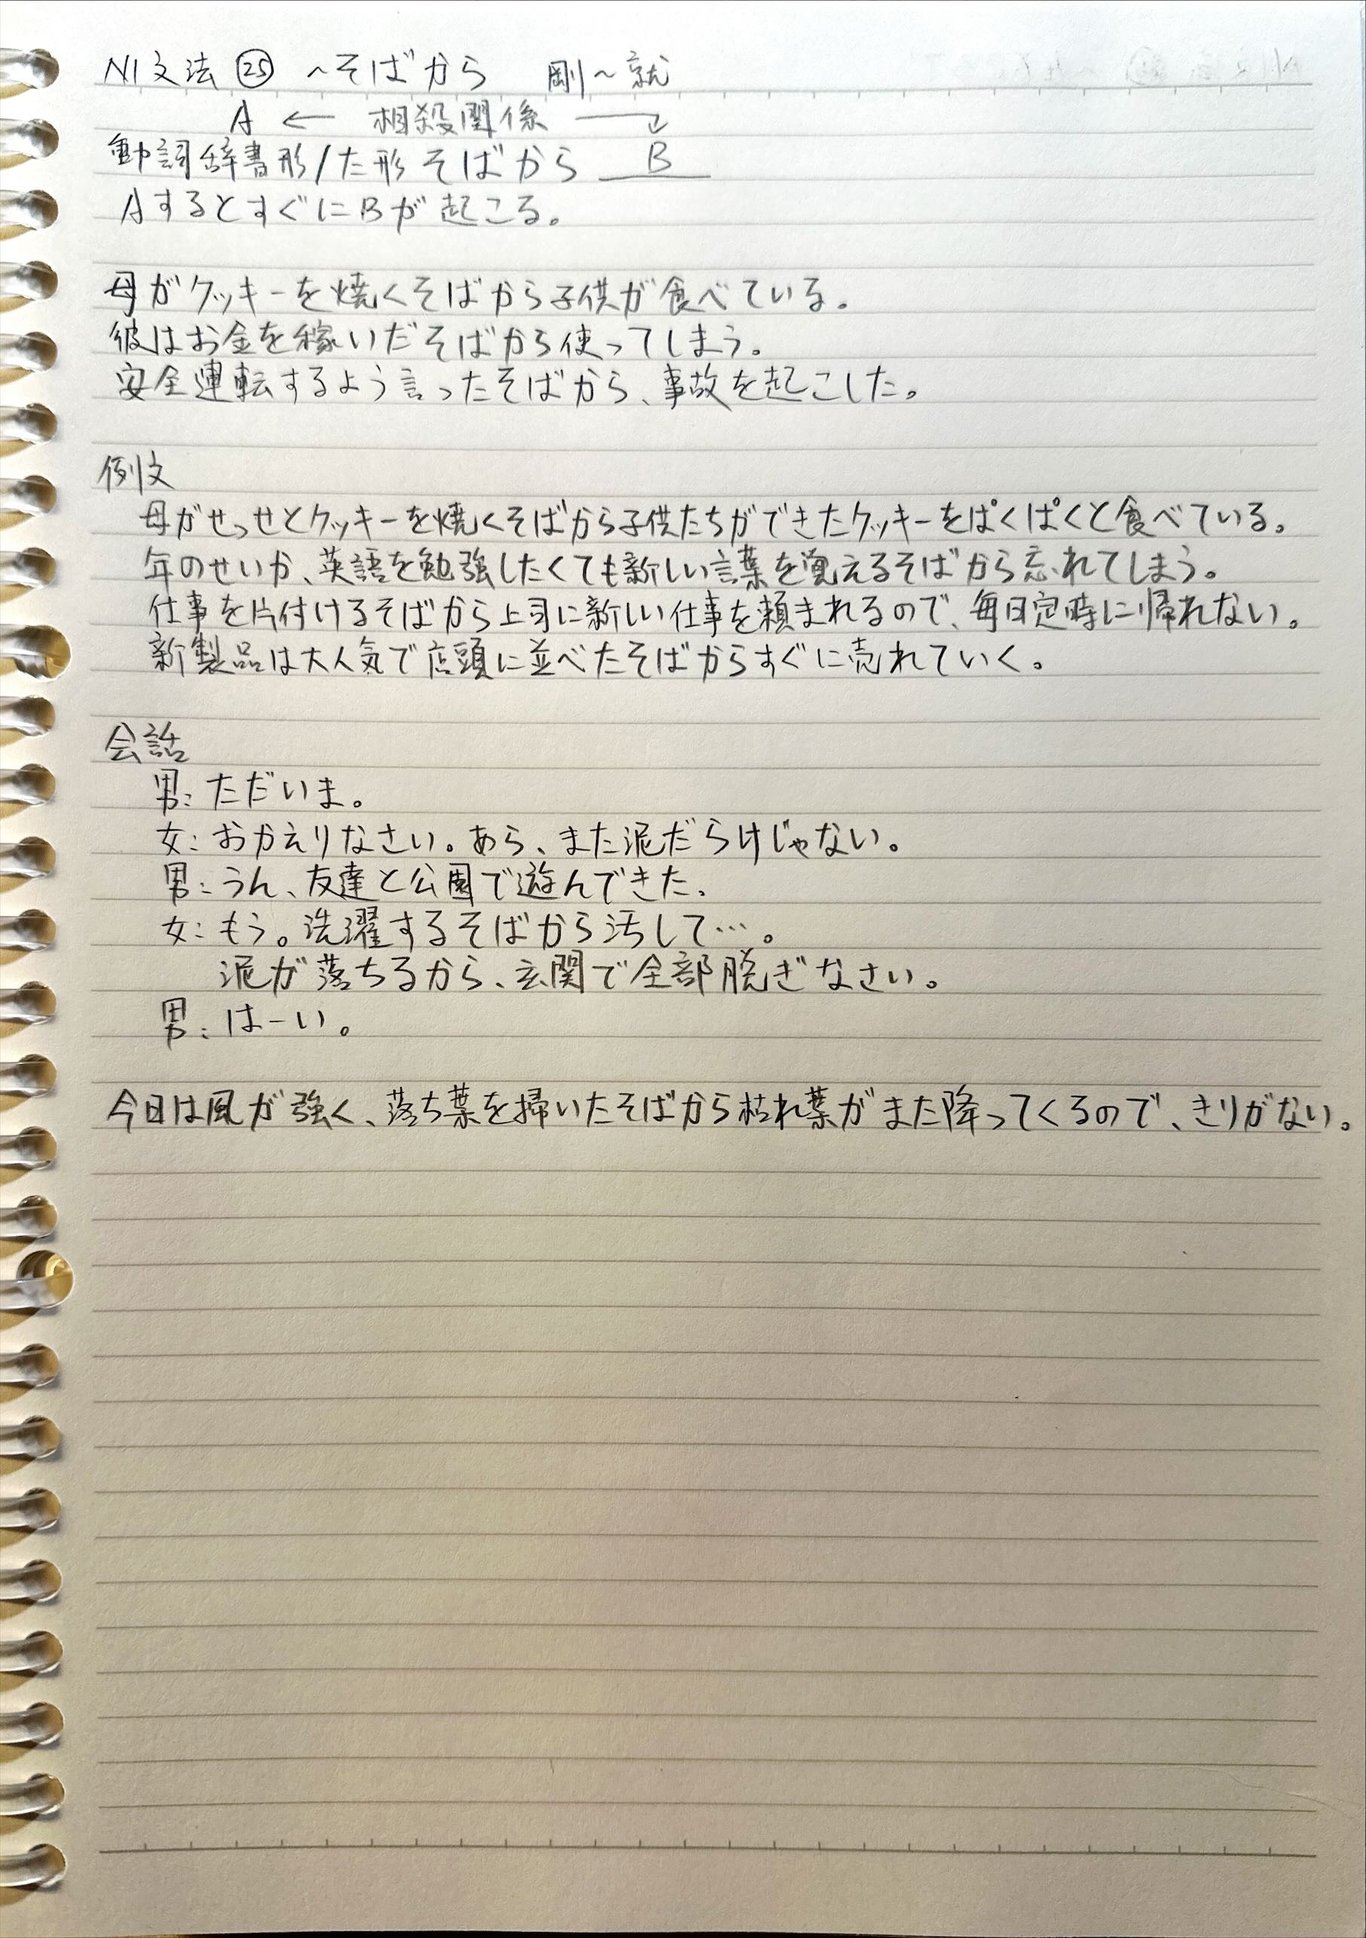 N1文法㉕ ~そばから 剛~就
A ← 相殺関係 → B
動詞辞書形/た形 そばから B
Aするとすぐに Bが起こる。
母がクッキーを焼くそばから子供が食べている。
彼はお金を稼いだそばから使ってしまう。
安全運転するよう言ったそばから、事故を起こした。
例文
母がせっせとクッキーを焼くそばから子供たちができたクッキーをぱくぱくと食べている。
年のせいか、英語を勉強したくても新しい言葉を覚えるそばから忘れてしまう。
仕事を片付けるそばから上司に新しい仕事を頼まれるので、毎日定時に帰れない。
新製品は大人気で店頭に並べたそばからすぐに売れていく。
会話
男: ただいま。
女: おかえりなさい。あら、また泥だらけじゃない。
男: うん、友達と公園で遊んできた。
女: もう。洗濯するそばから汚して…。
泥が落ちるから、玄関で全部脱ぎなさい。
男: はーい。
今日は風が強く、落ち葉を掃いたそばから枯れ葉がまた降ってくるので、きりがない。